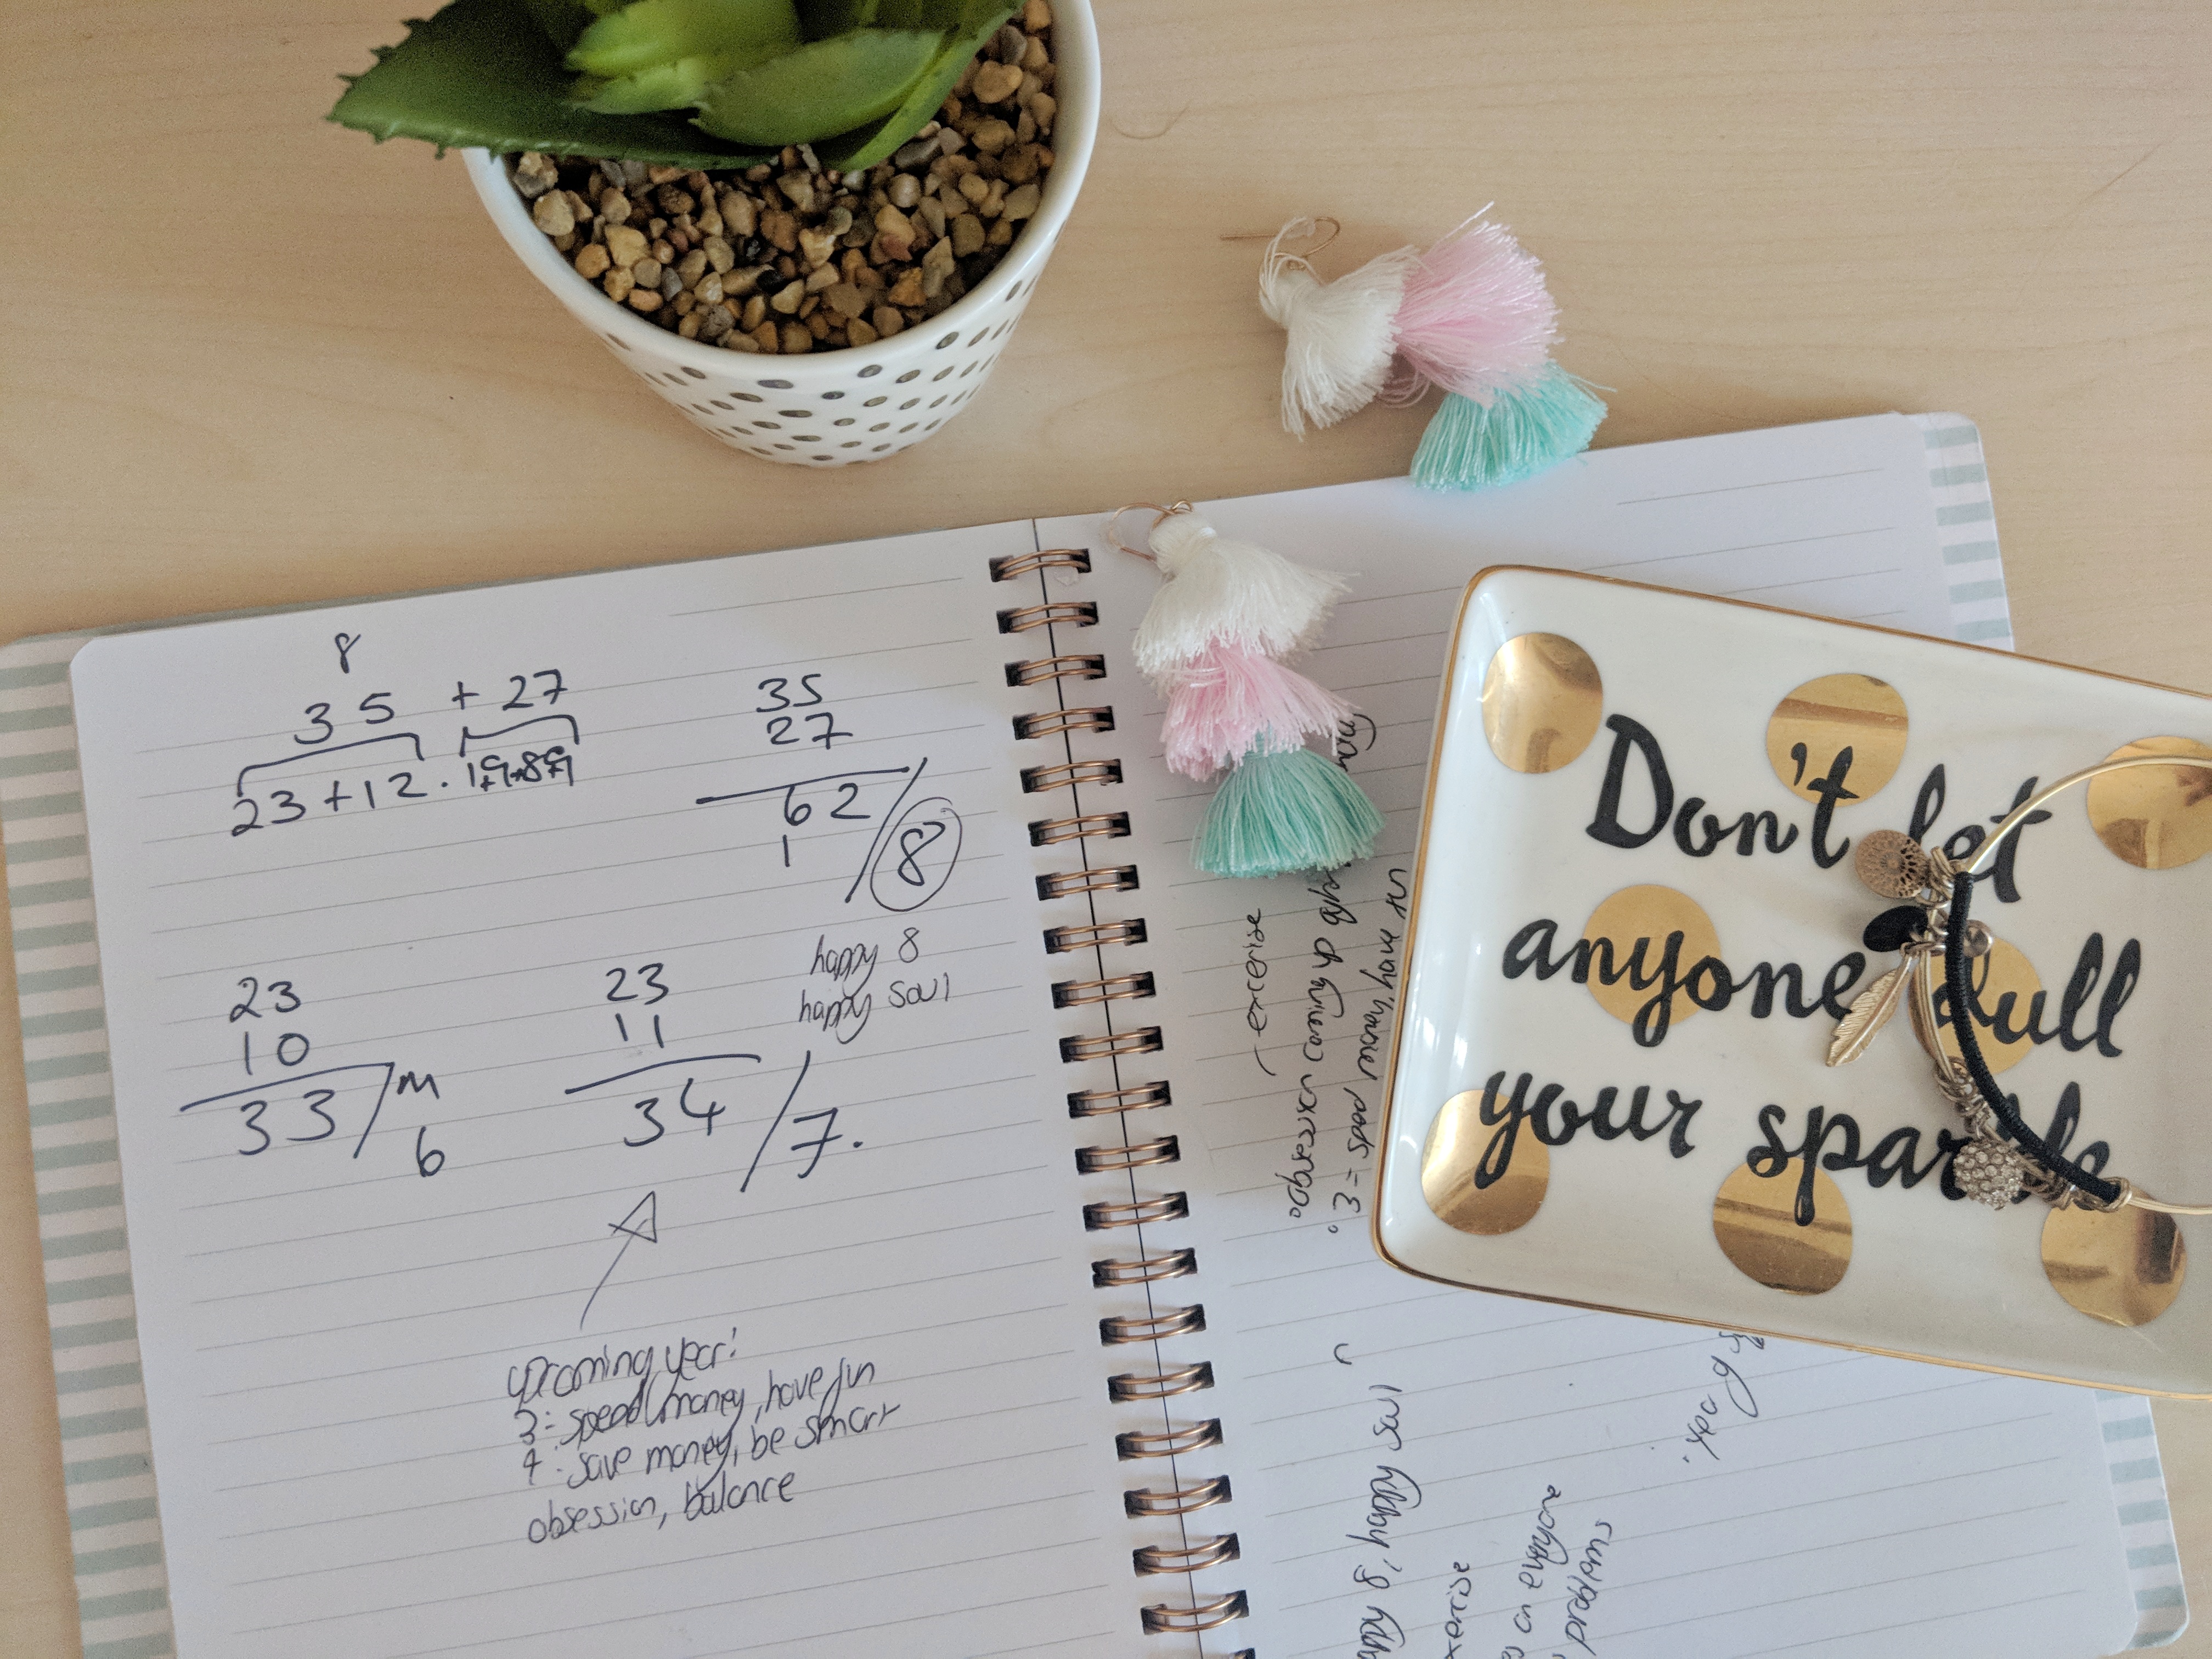 8
35 + 27
23+12. 1+9+8+9
35
27
62/8
1
happy 8
happy soul
23
10
33/m
6
23
11
34/7.
upcoming year:
3 = spend money, have fun
4 = save money, be smart
obsession, balance
- exercise
°obsession coming up
° 3 = spend money, have fun
happy 8, happy soul
on everyone
problems
Don't let
anyone dull
your sparkle